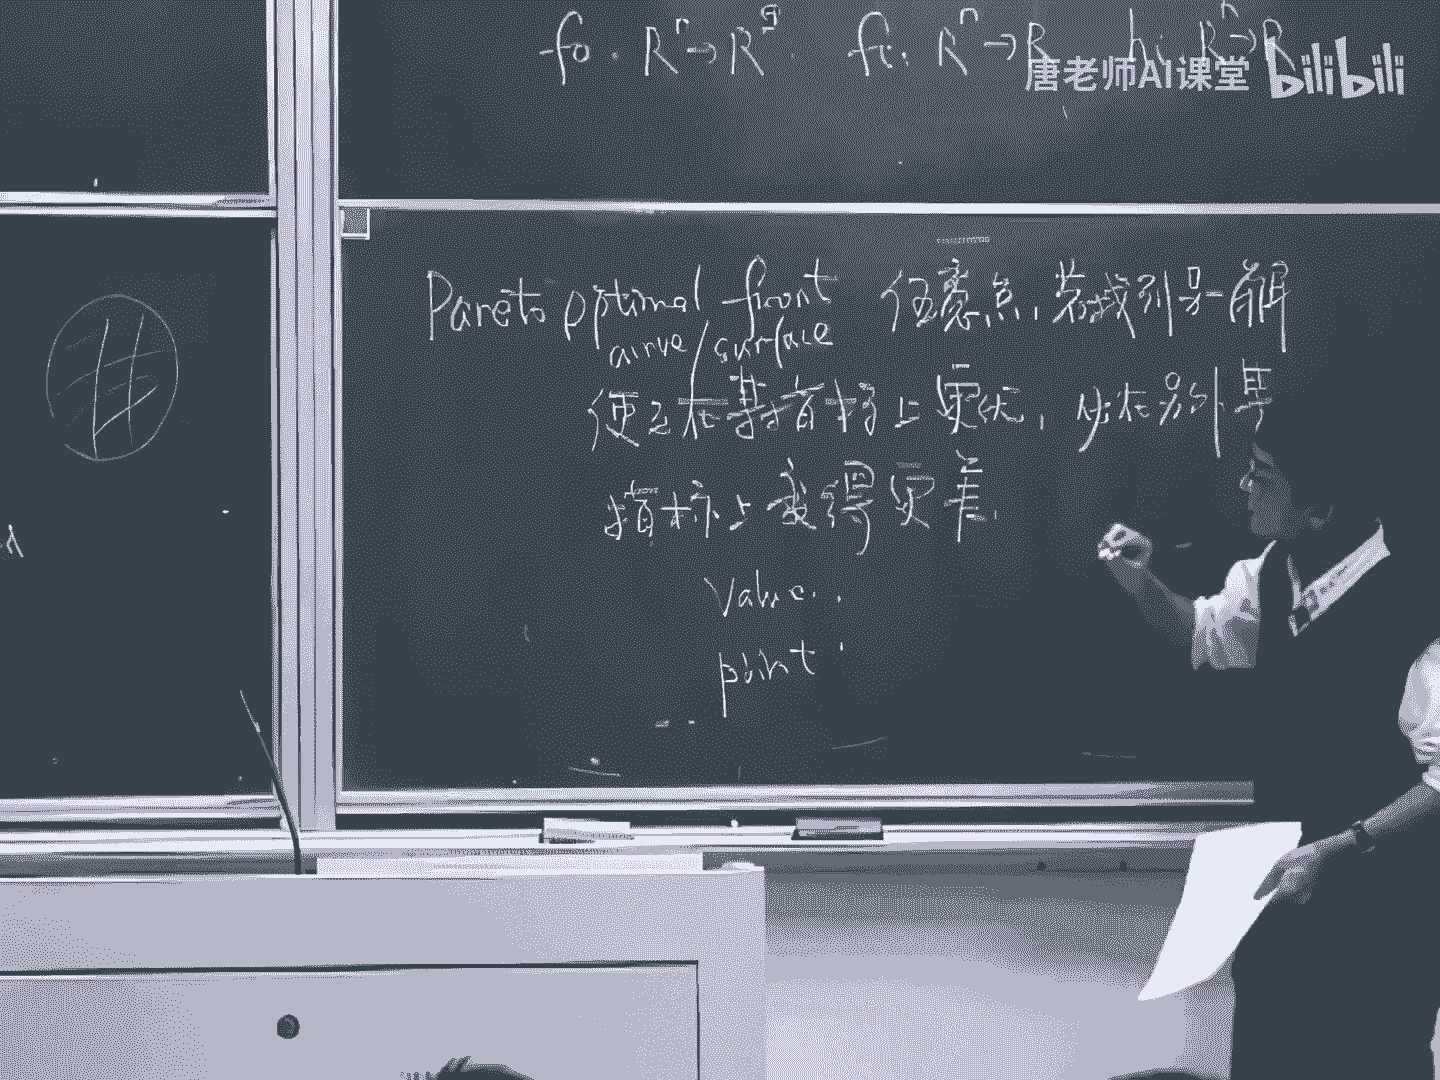 f₀: Rⁿ→R^q. fi: Rⁿ→R hi: Rⁿ→R
唐老师AI课堂 bilibili
Pareto optimal front 任意点,若找到另一解
curve/surface
使之在某指标上更优,必在另外某
指标上变得更差.
Value..
point
λ